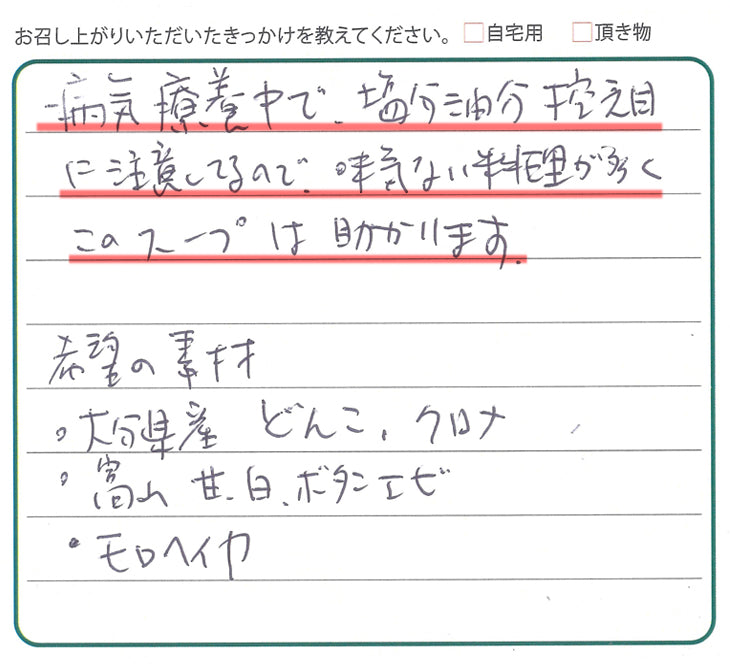 お召し上がりいただいたきっかけを教えてください。 □自宅用 □頂き物
病気療養中で、塩分油分控え目
に注意してるので、味気ない料理が多く
このスープは助かります。
希望の素材
・大分県産 どんこ、クロメ
・富山 甘、白、ボタンエビ
・モロヘイヤ